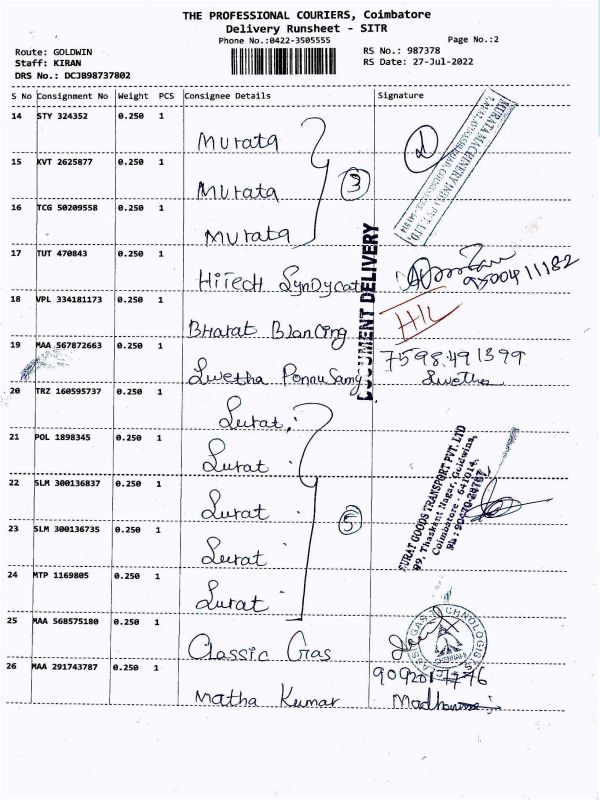 THE PROFESSIONAL COURIERS, Coimbatore
Delivery Runsheet - SITR
Phone No.:0422-3505555 Page No.:2
Route: GOLDWIN RS No.: 987378
Staff: KIRAN RS Date: 27-Jul-2022
DRS No.: DCJB98737802
S No Consignment No Weight PCS Consignee Details Signature
14 STY 324352 0.250 1
Murata
15 KVT 2625877 0.250 1
Murata 3
16 TCG 50209558 0.250 1
Murata
MURATA MACHINERY INDIA PVT. LTD.
17 TUT 470843 0.250 1
HiTech Syndycat 9500411182
DOCUMENT DELIVERY
18 VPL 334181173 0.250 1
Bharat Blancing
19 MAA 567872663 0.250 1 7598491399
Swetha Ponnusamy Swetha
20 TRZ 160595737 0.250 1
Surat
21 POL 1898345 0.250 1
Surat
22 SLM 300136837 0.250 1
Surat 5
23 SLM 300136735 0.250 1
Surat
24 MTP 1169805 0.250 1
Surat
SURAT GOODS TRANSPORT PVT. LTD
99, Thaskent Nagar, Goldwins,
Coimbatore - 641014.
25 MAA 568575180 0.250 1
Classic Gas
26 MAA 291743787 0.250 1
Matha Kumar